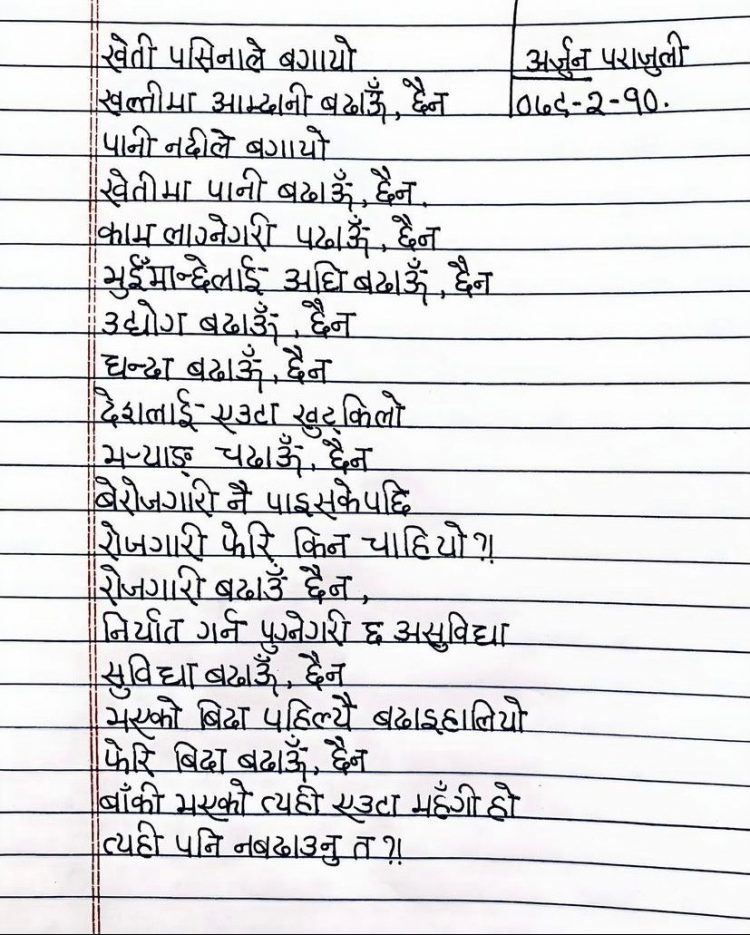 खेती पसिनाले बगायो
अर्जुन पराजुली
खल्तीमा आम्दानी बढाऊँ, छैन
०७९-२-१०.
पानी नदीले बगायो
खेतीमा पानी बढाऊँ, छैन.
काम लाग्नेगरी पढाऊँ, छैन
भुईँमान्छेलाई अघि बढाऊँ, छैन
उद्योग बढाऊँ, छैन
धन्दा बढाऊँ, छैन
देशलाई एउटा खुट्किलो
भर्‍याङ चढाऊँ, छैन
बेरोजगारी नै पाइसकेपछि
रोजगारी फेरि किन चाहियो ?!
रोजगारी बढाउँ छैन,
निर्यात गर्न पुग्नेगरी छ असुविधा
सुविधा बढाऊँ, छैन
भएको बिदा पहिल्यै बढाइहालियो
फेरि बिदा बढाऊँ, छैन
बाँकी भएको त्यही एउटा महँगी हो
त्यही पनि नबढाउनु त ?!